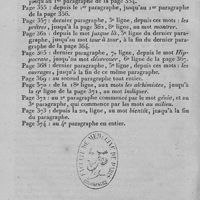 jusqu'au 1er paragraphe de la 354.
Page 355 : depuis le 2e paragraphe, jusqu'au 1er paragraphe
de la page 356.
Page 357 : dernier paragraphe, 3e ligne, depuis ces mots : les
prêtres, jusqu'à la page 361, 8e ligne, au mot montrer.
Page 361 : depuis le mot jusque là, 5e ligne du 3e paragraphe,
jusqu'au mot tour à tour, à la fin du dernier paragraphe
de la page 364.
Page 365 : dernier paragraphe, 7e ligne, depuis le mot Hippocrate,
jusqu'au mot découvrir, 6e ligne de la page 367.
Page 368 : dernier paragraphe, 5e ligne, depuis ces mots : les
ouvrages, jusqu'à la fin de ce même paragraphe.
Page 369 : au second paragraphe tout entier.
Page 370 : de la 18e ligne, aux mots les alchimistes, jusqu'à
la 9e ligne de la page 371, au mot indiquer.
Page 372 : au 2e paragraphe commence par le mot génie, et au
3e paragraphe, qui commence par les mots au milieu.
Page 373 : depuis la 20e ligne, au mot bientôt, jusqu'à la fin
du paragraphe.
Page 374 : au 4e paragraphe en entier.